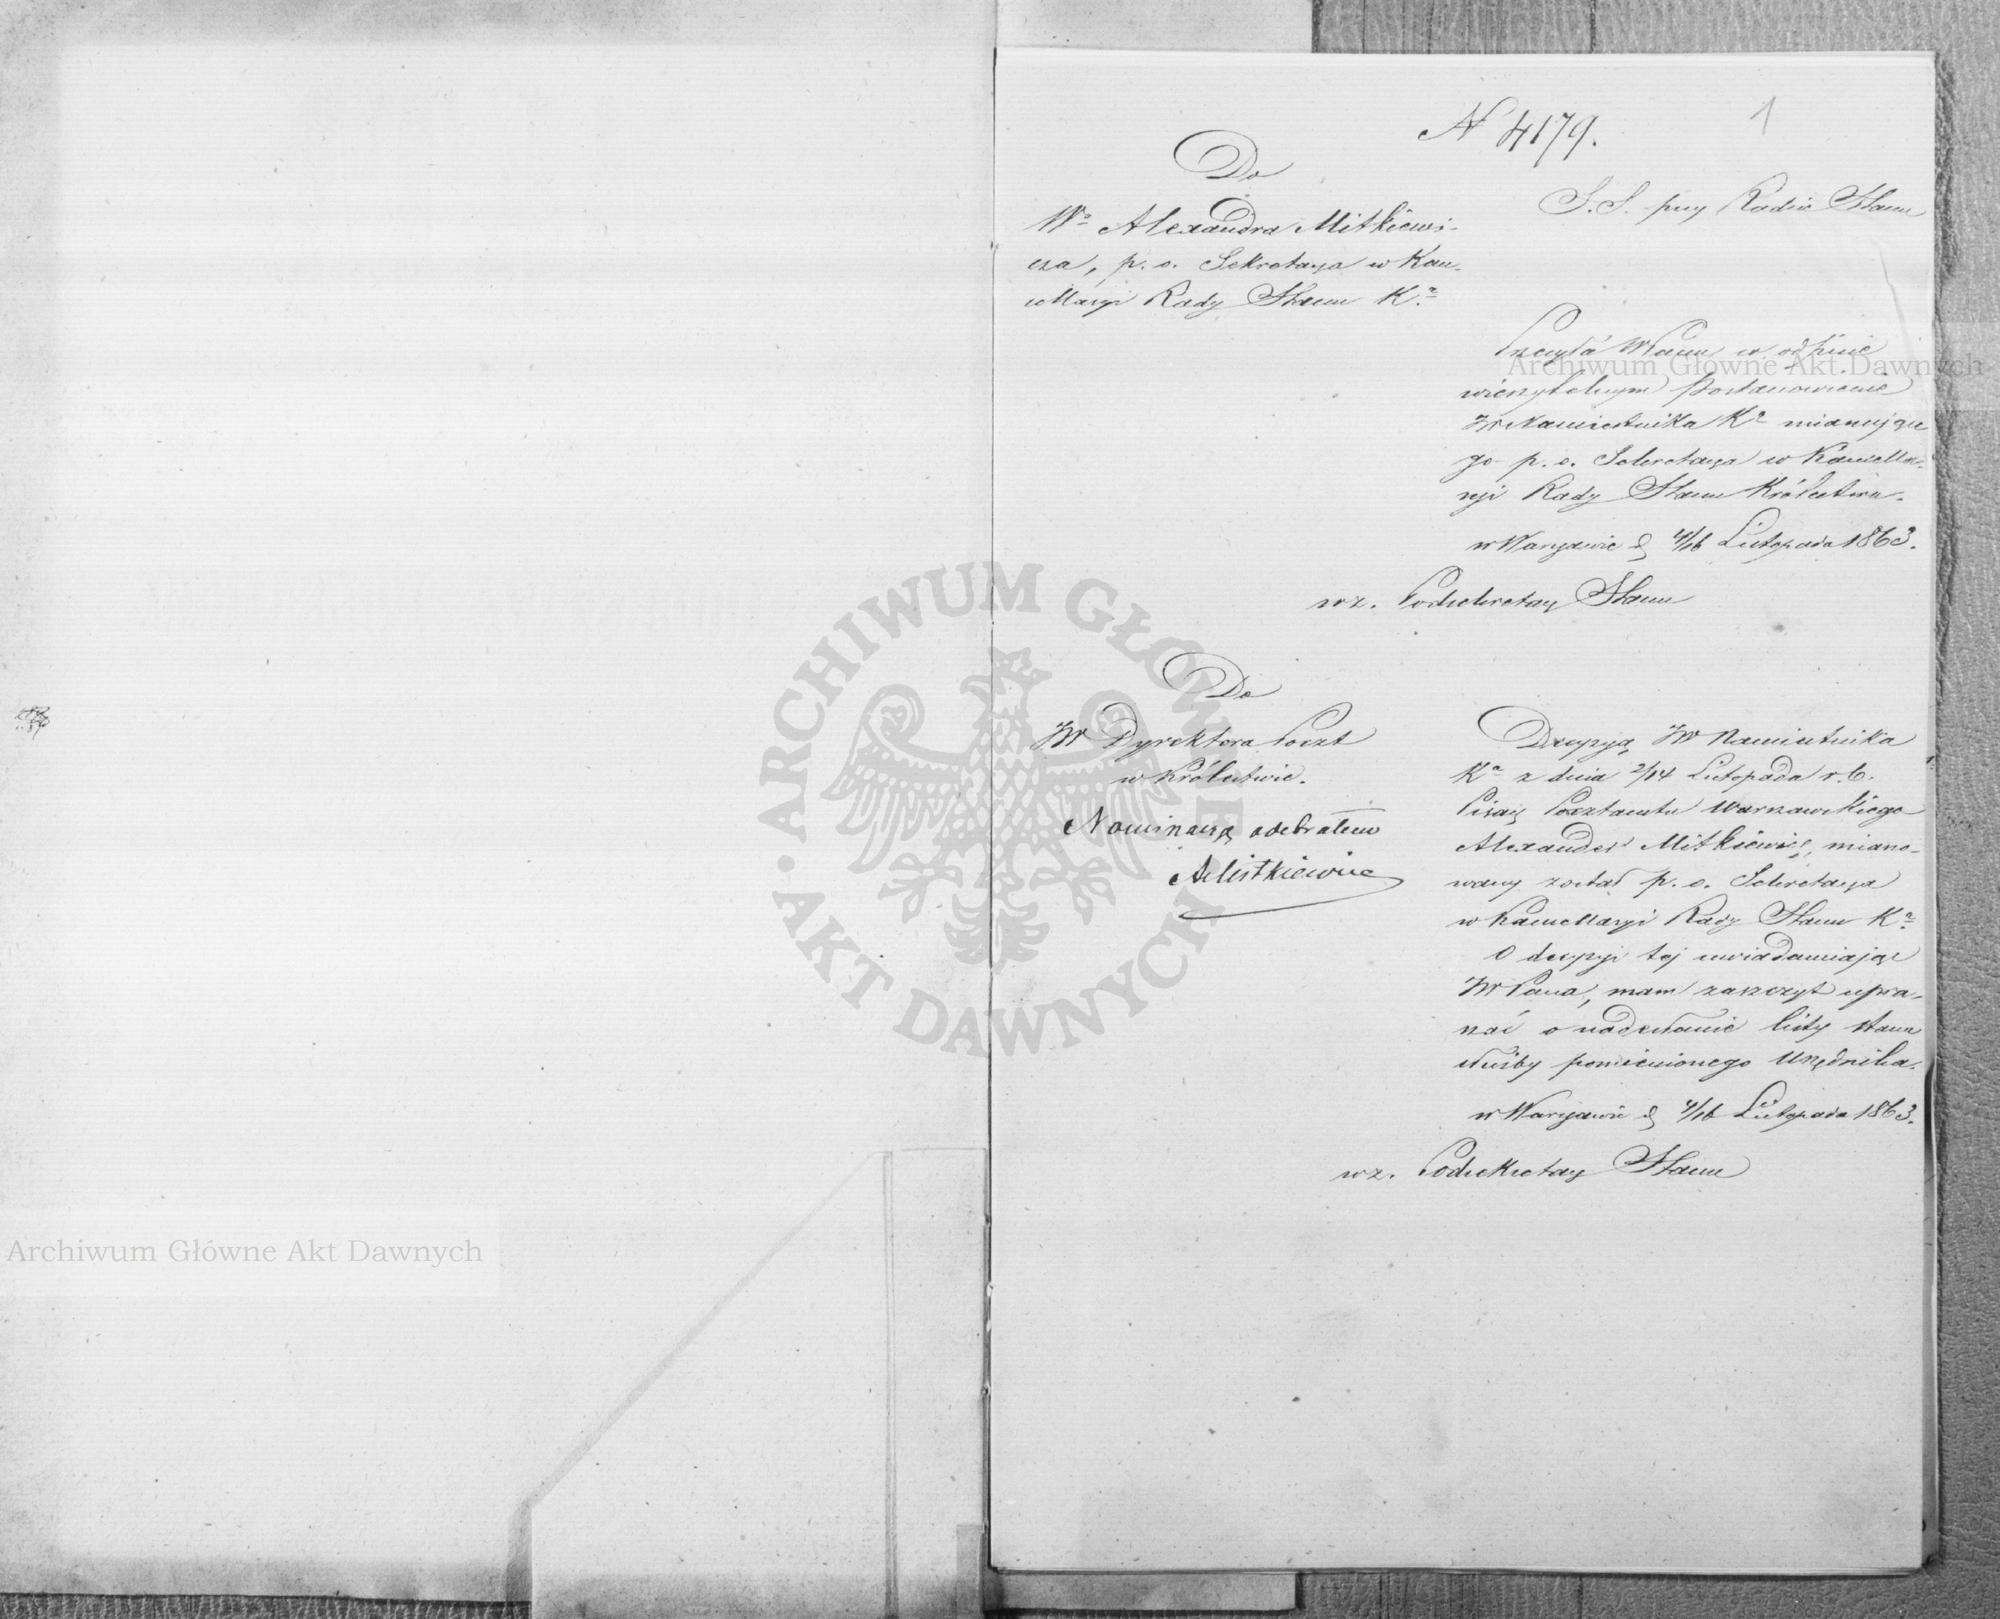 1
N 4179.
Do
Wº Alexandra Mitkiewi-
cza, p. o. Sekretarza w Kan-
cellaryi Rady Stanu Kª
S. S. przy Radzie Stanu
Przesyła WPanu w odpisie
wierzytelnym Postanowienie
JW Namiestnika Kª mianujące
go p. o. Sekretarza w Kancella-
ryi Rady Stanu Królestwa.
w Warszawie d 4/16 Listopada 1863.
wz. Podsekretarz Stanu
Do
JW Dyrektora Poczt
w Królestwie.
Nominacyą odebrałem
AMitkiewicz
Decyzyą JW Namiestnika
Kª z dnia 2/14 Listopada r. b.
Pisarz Pocztamtu Warszawskiego
Alexander Mitkiewicz, miano-
wany został p. o. Sekretarza
w Kancellaryi Rady Stanu Kª
O decyzyi tej uwiadamiając
JW Pana, mam zaszczyt upra-
szać o nadesłanie listy stanu
służby pomienionego Urzędnika.
w Warszawie d 4/16 Listopada 1863.
wz. Podsekretarz Stanu
Archiwum Główne Akt Dawnych
Archiwum Główne Akt Dawnych
ARCHIWUM GŁÓWNE AKT DAWNYCH